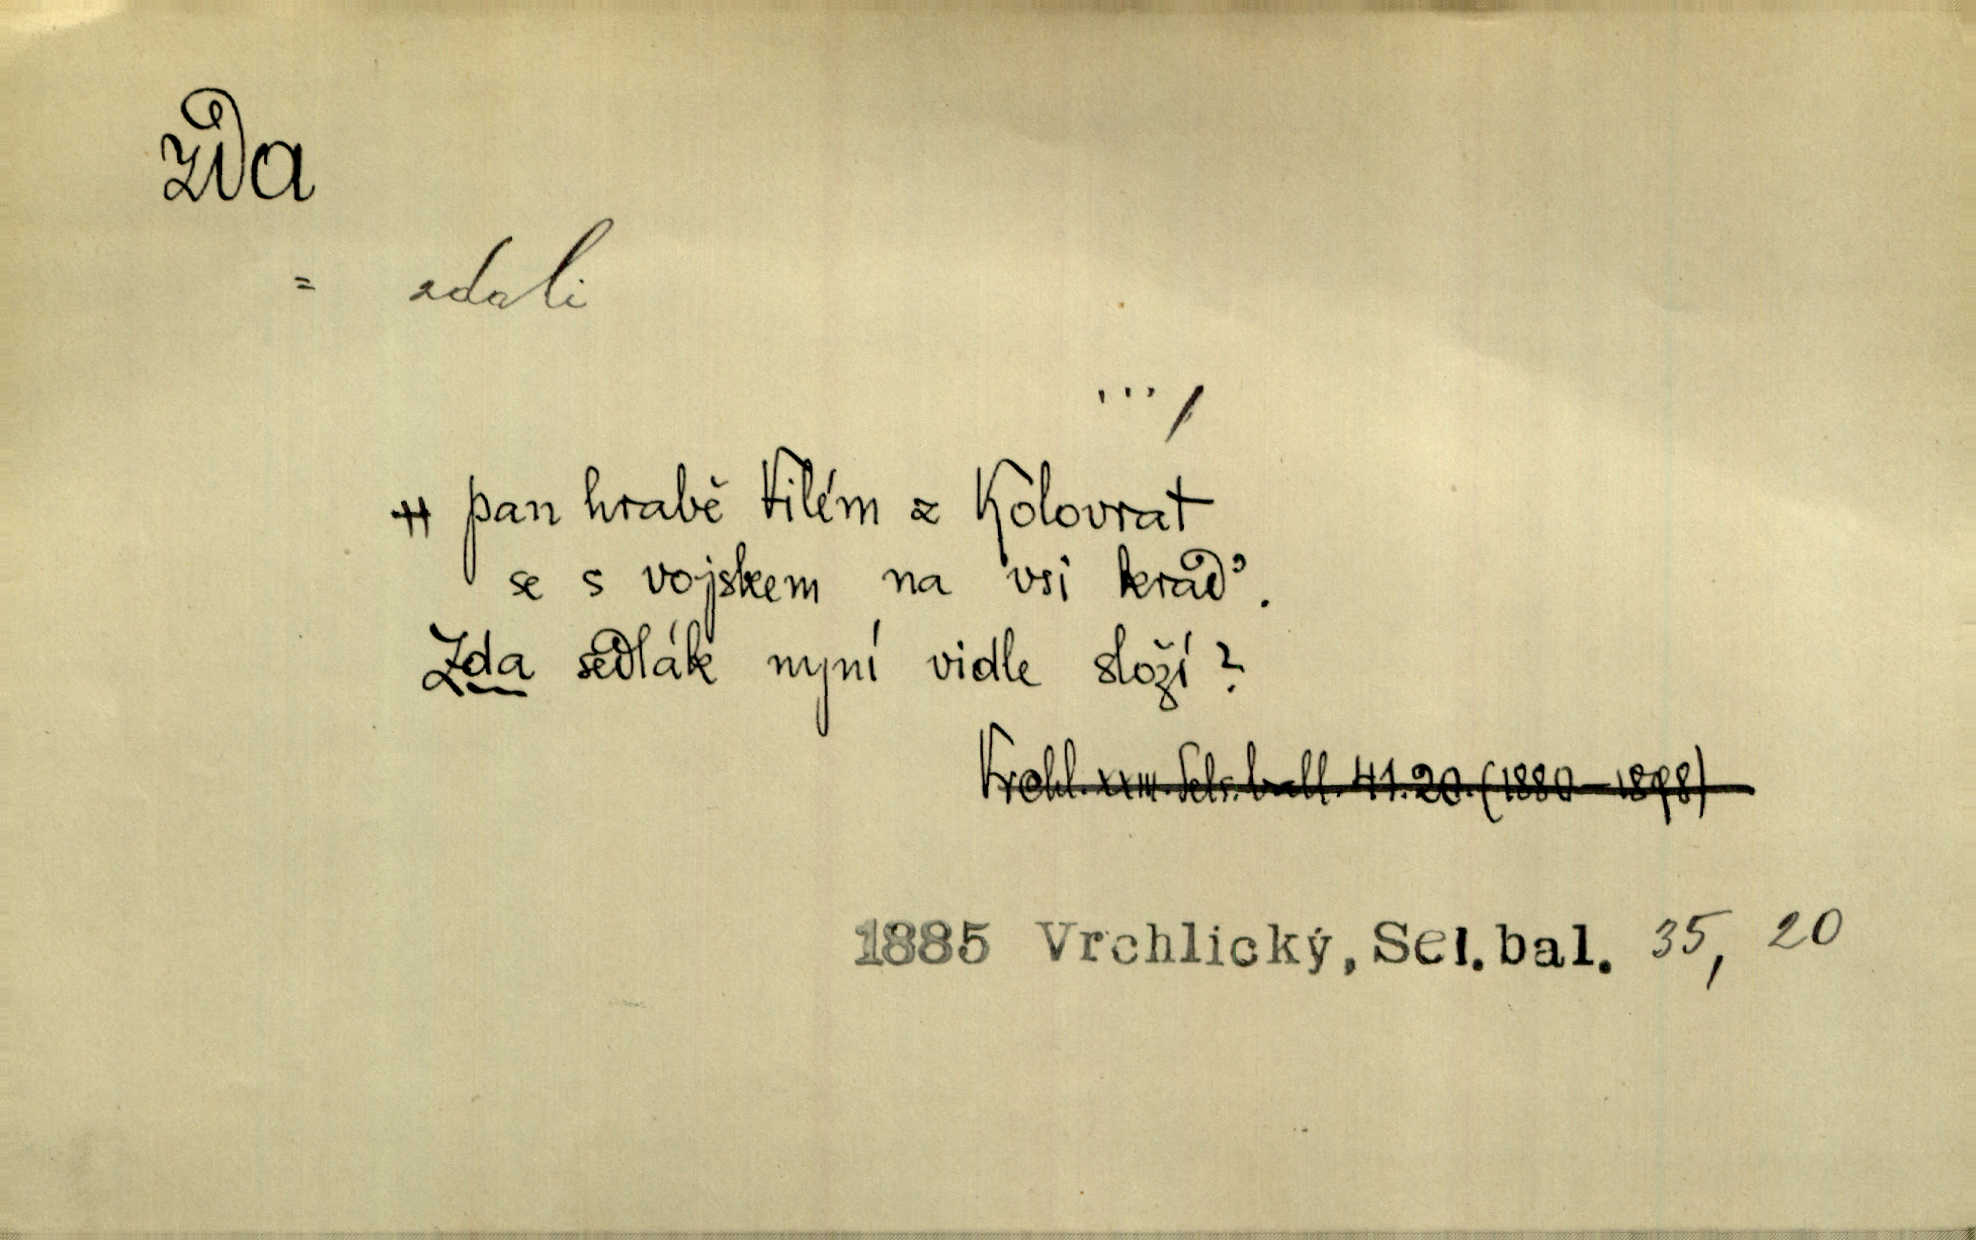 zda
= zdali
... /
pan hrabě Vilém z Kolovrat
se s vojskem na vsi krad'.
Zda sedlák nyní vidle složí?
Vrchl. XXIII. Sels. ball. 41.20. (1880–1898)
1885 Vrchlický, Sel. bal. 35, 20